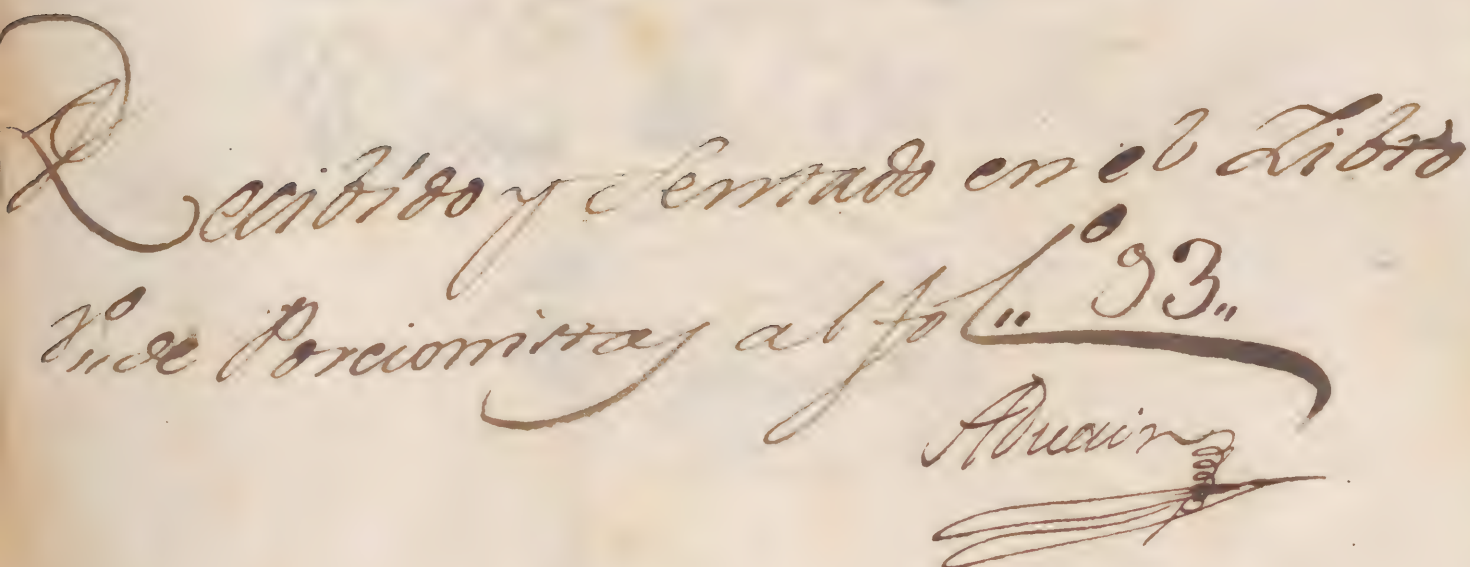 Recibido y Sentado en el Libro
de Porcionistas al fol.º 93,,